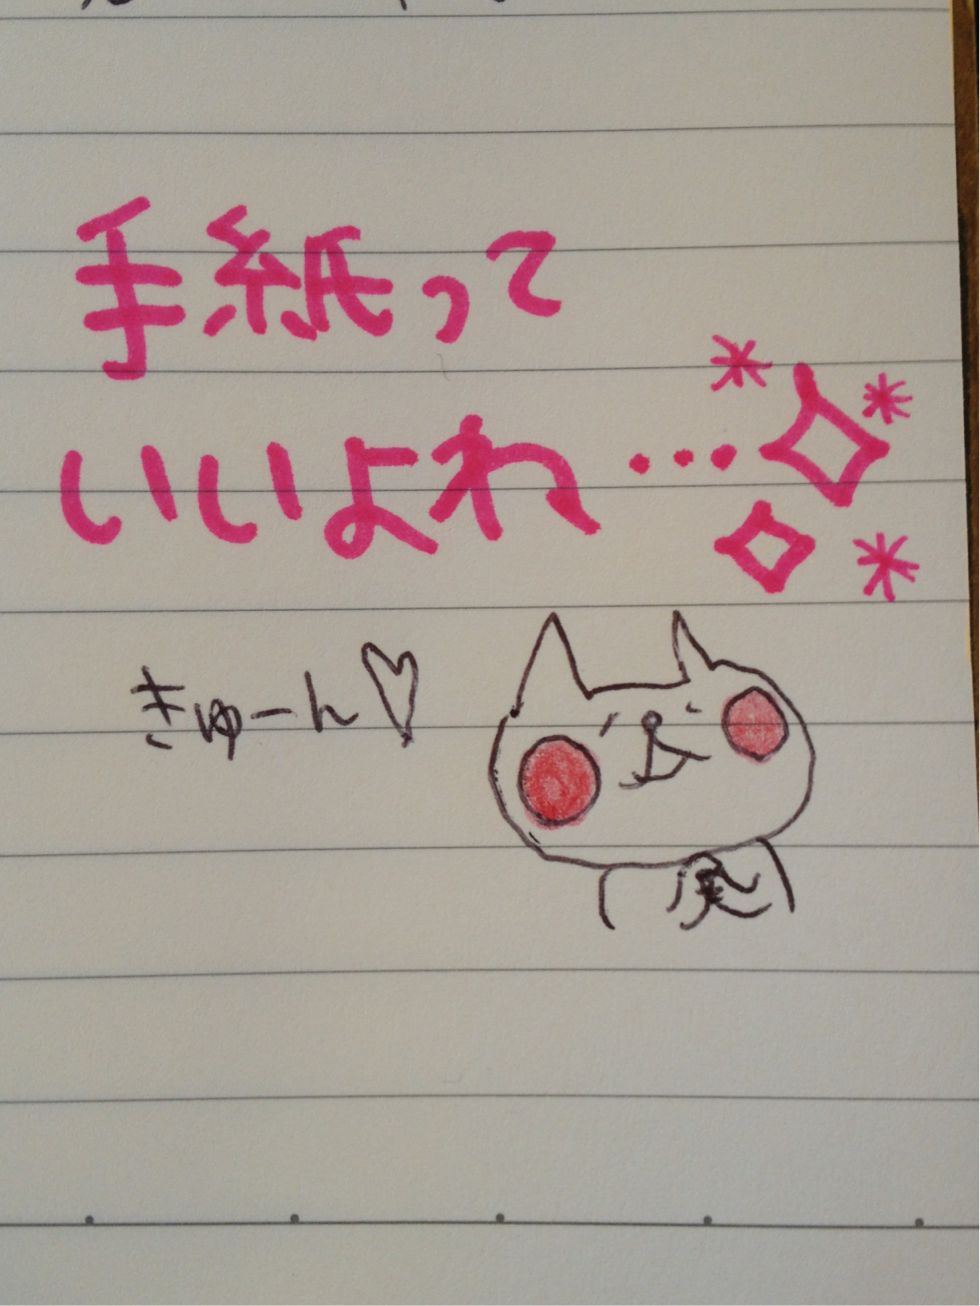 手紙って
いいよね…
きゅーん♡